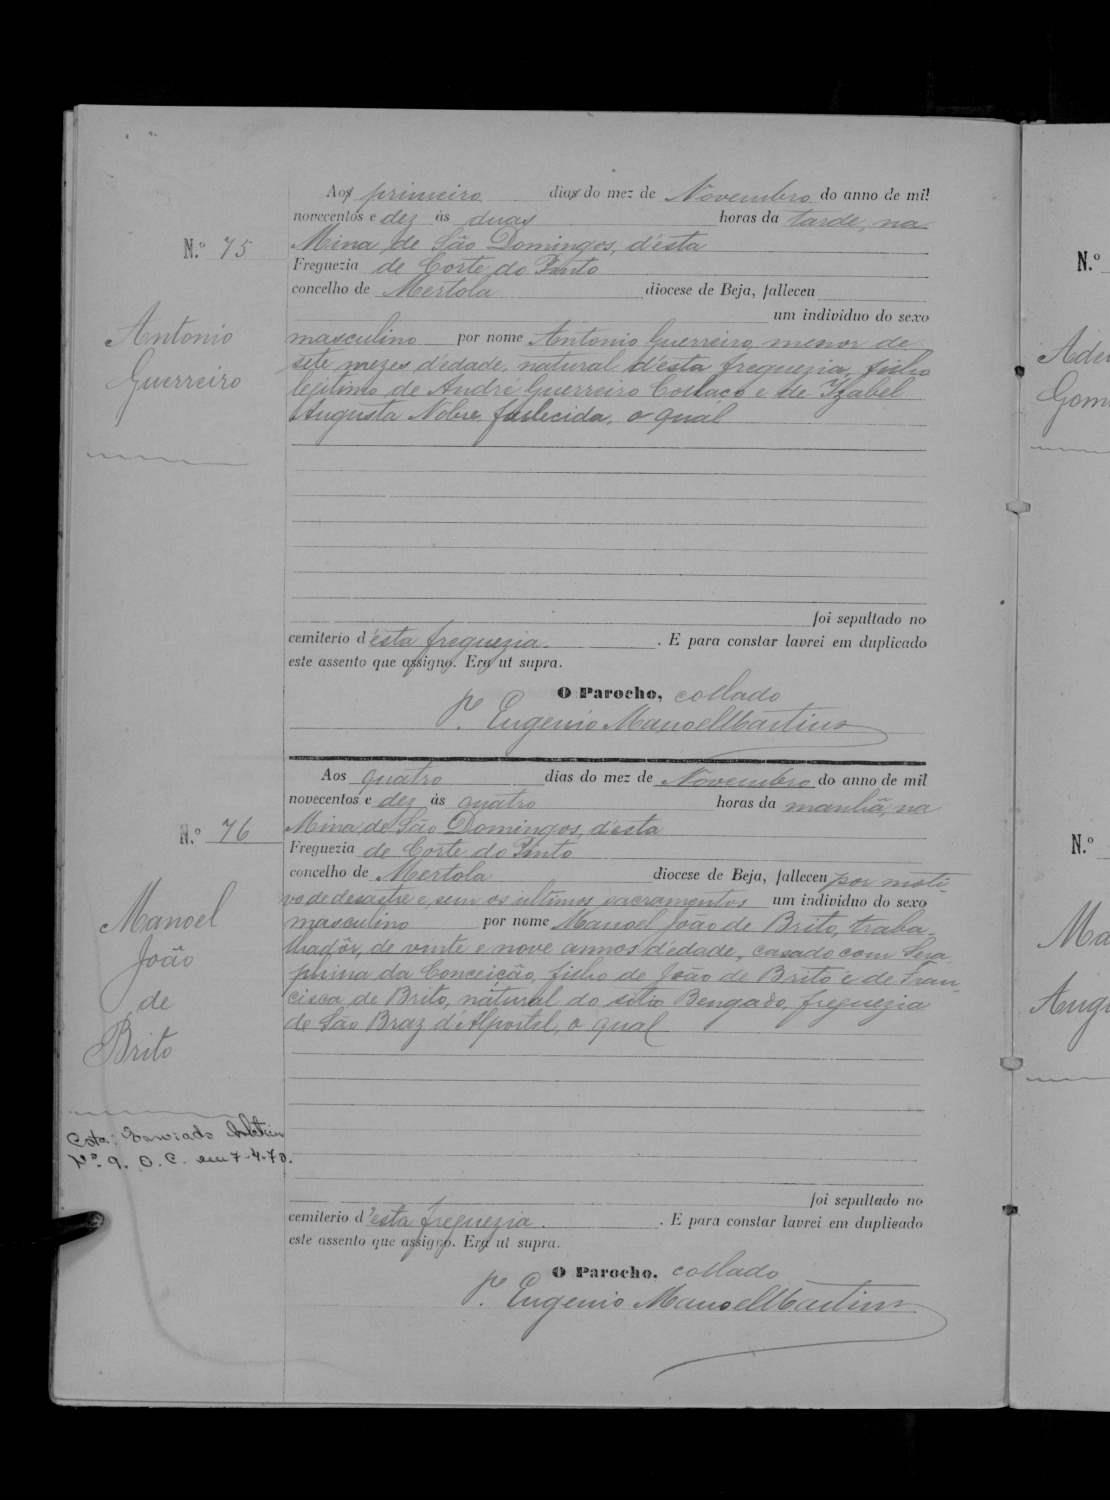 Aos primeiro dias do mez de Novembro do anno de mil
novecentos e dez às duas horas da tarde, na
N.º 75
Mina de São Domingos, d'ésta
Freguezia de Corte do Pinto
concelho de Mertola diocese de Beja, falleceu
um individuo do sexo
Antonio
Guerreiro
masculino por nome Antonio Guerreiro, menor de
sete mezes d'edade, natural d'ésta freguezia, filho
legitimo de André Guerreiro e de Yzabel
Augusta Nobre, fallecida, o qual
foi sepultado no
cemiterio d'ésta freguezia. . E para constar lavrei em duplicado
este assento que assigno. Era ut supra.
O Parocho, collado
P.e Eugenio Manoel Martins
Aos quatro dias do mez de Novembro do anno de mil
novecentos e dez às quatro horas da manhã, na
N.º 76
Mina de São Domingos, d'ésta
Freguezia de Corte do Pinto
concelho de Mertola diocese de Beja, falleceu por moti-
vo de desastre e, sem os ultimos sacramentos um individuo do sexo
Manoel
João
de
Brito
masculino por nome Manoel João de Brito, traba-
lhadôr, de vinte e nove annos d'edade, casado com Sera-
phina da Conceição, filho de João de Brito e de Fran-
cisca de Brito, natural do sitio Bengado, freguezia
de São Braz d'Alportel, o qual
N.º 9. O. C. em 7-4-70.
foi sepultado no
cemiterio d'ésta freguezia. . E para constar lavrei em duplicado
este assento que assigno. Era ut supra.
O Parocho, collado
P.e Eugenio Manoel Martins
N.º
Gom
N.º
Ma